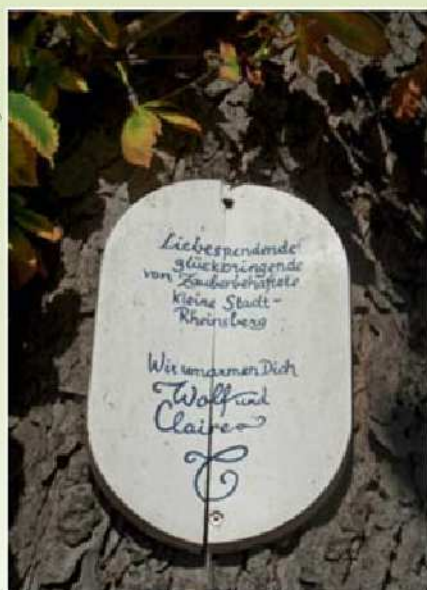 Liebespendende
glückbringende
von Zauberbehaftete
kleine Stadt-
Rheinsberg
Wir umarmen Dich
Wolf und
Claire